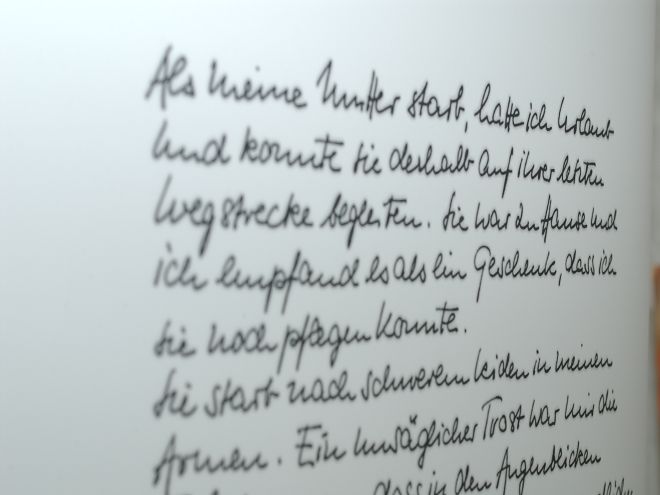 Als meine Mutter starb, hatte ich Urlaub
und konnte sie deshalb auf ihrer letzten
Wegstrecke begleiten. Sie war zu Hause und
ich empfand es als ein Geschenk, dass ich
sie noch pflegen konnte.
Sie starb nach schwerem Leiden in meinen
Armen. Ein unsäglicher Trost war mir die
dass in den Augenblicken